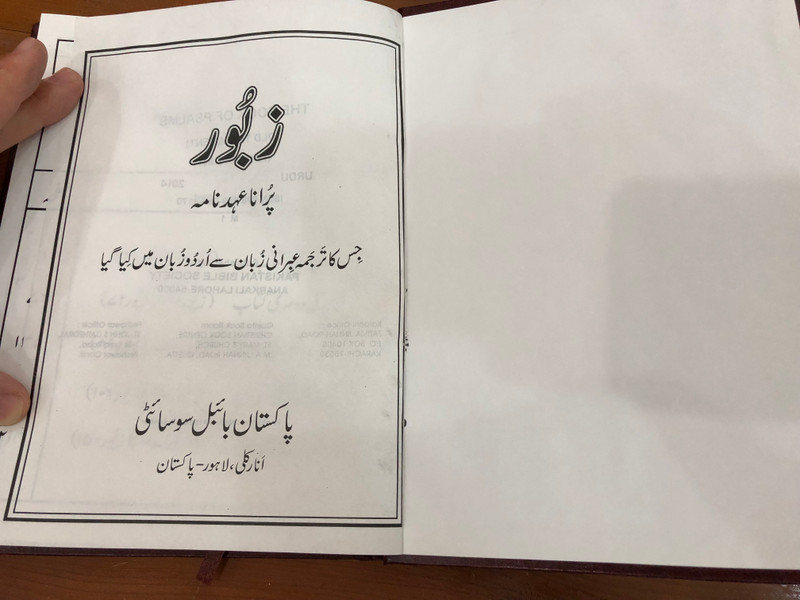 زبُور
پُرانا عہد نامہ
جِس کا تَرجَمہ عِبرانی زُبان سے اُردُو زُبان میں کِیا گیا
پاکستان بائبل سوسائٹی
انارکلی، لاہور - پاکستان